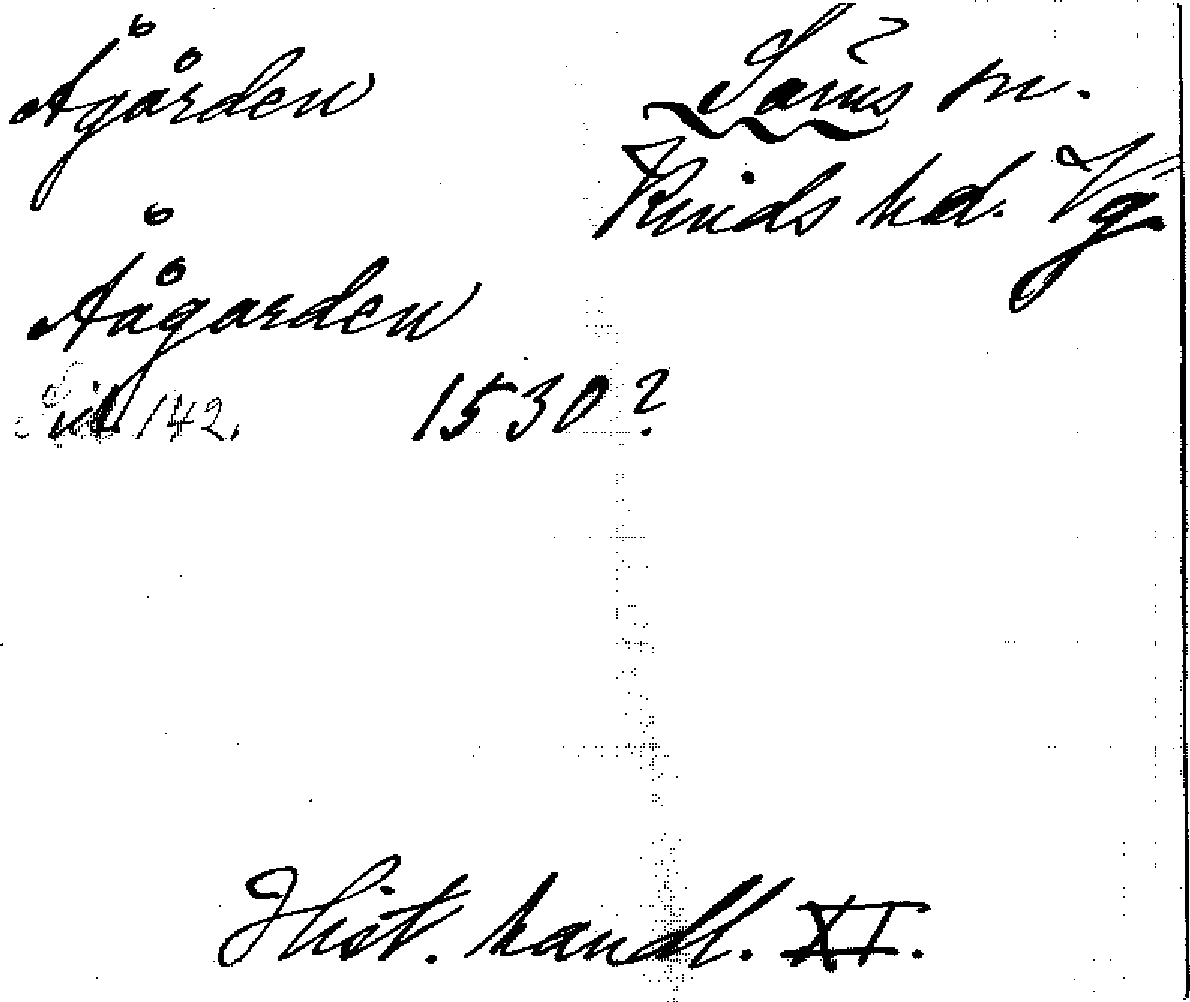 Ågården
Säms sn.
Kinds hd. Vg.
Åågården
Sid. 142. 1530?
Hist. handl. XI.